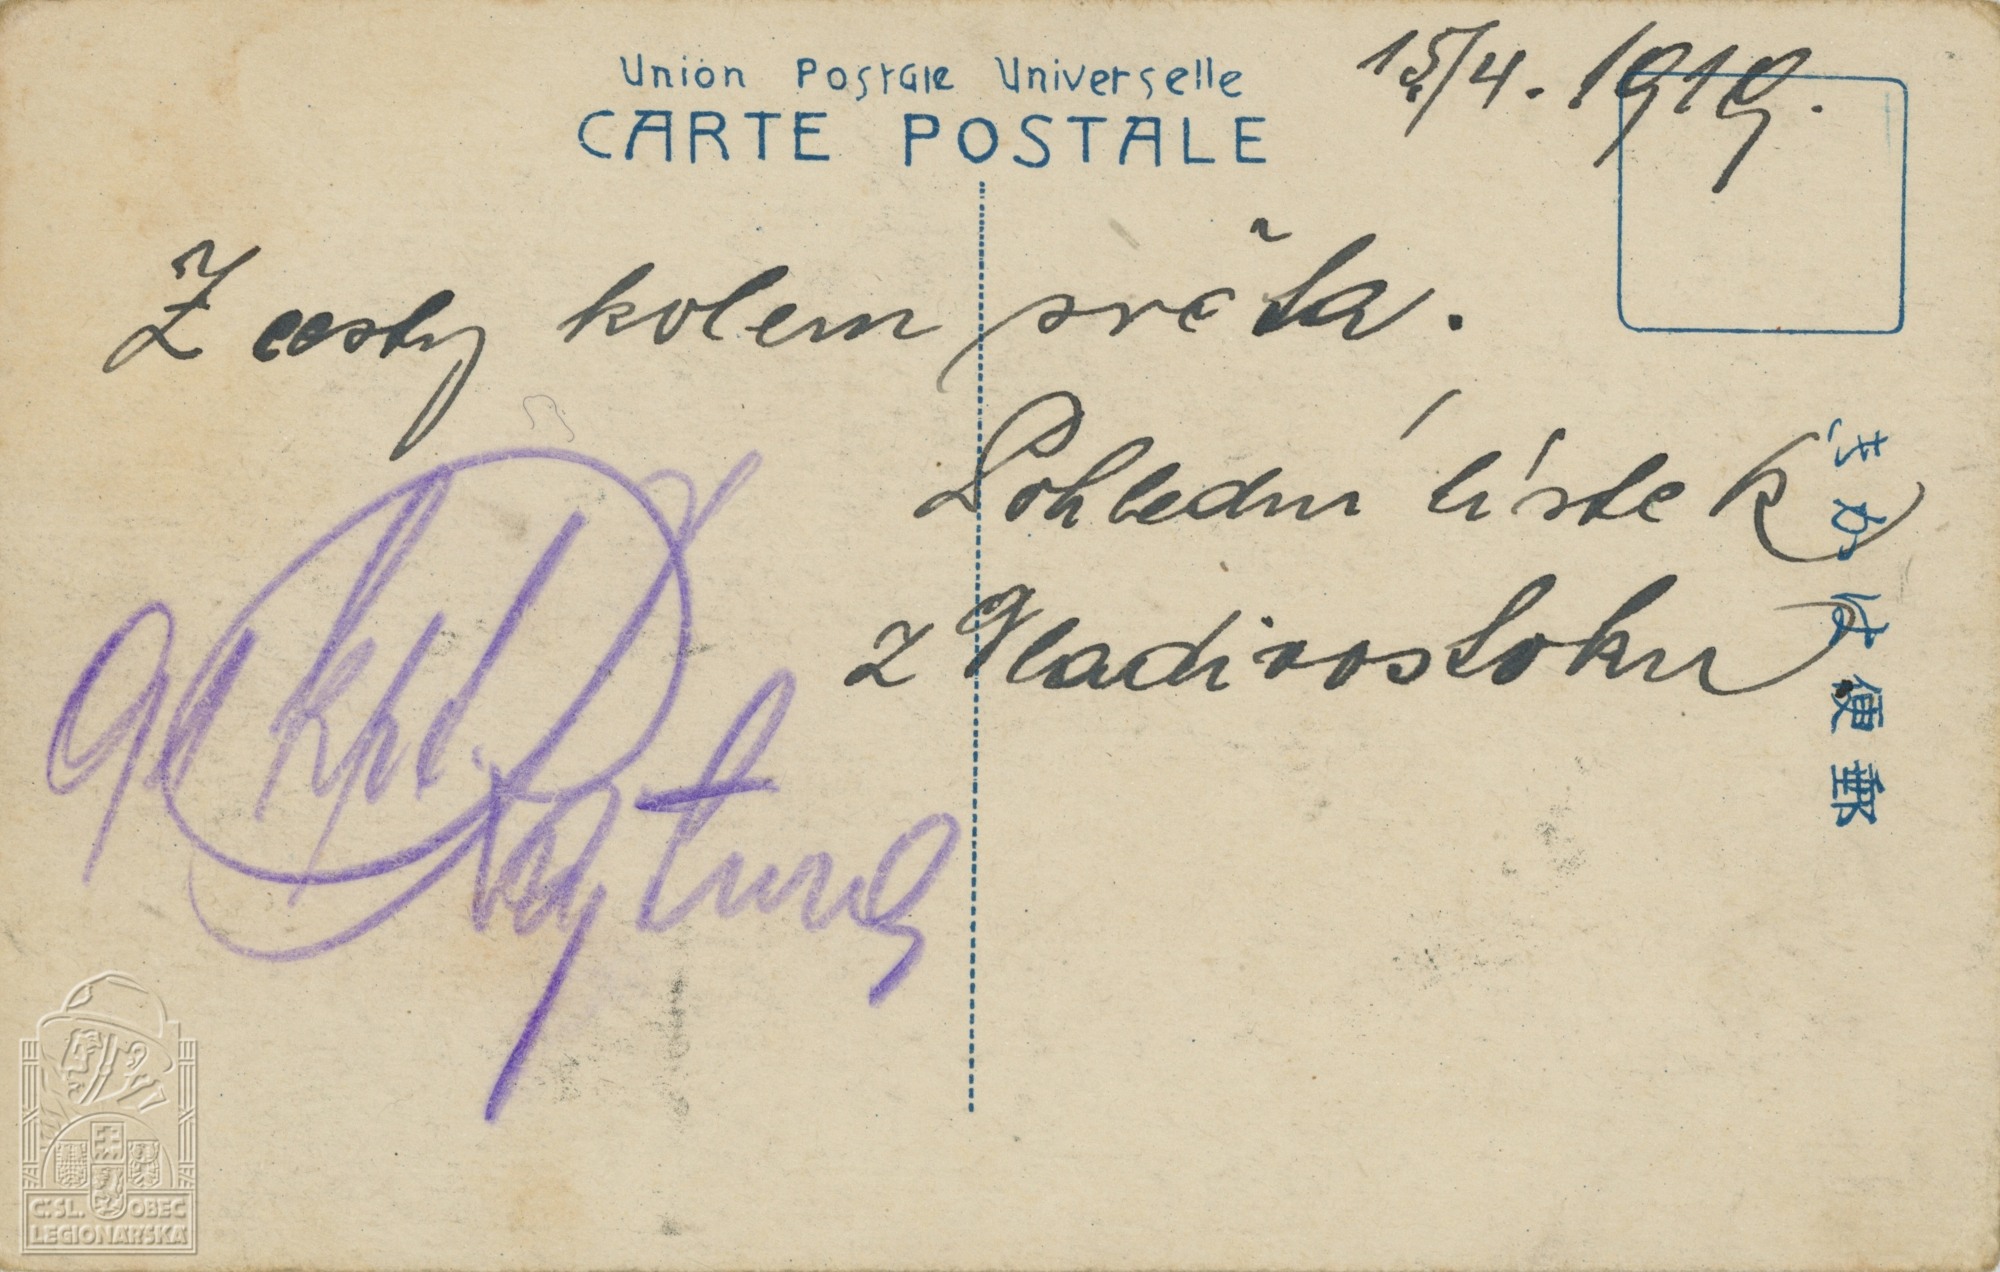 15/4. 1919.
Union Postale Universelle
CARTE POSTALE
Z cesty kolem světa.
Pohlední lístek
z Vladivostoku
郵便はがき
ČSL. OBEC
LEGIONÁŘSKÁ